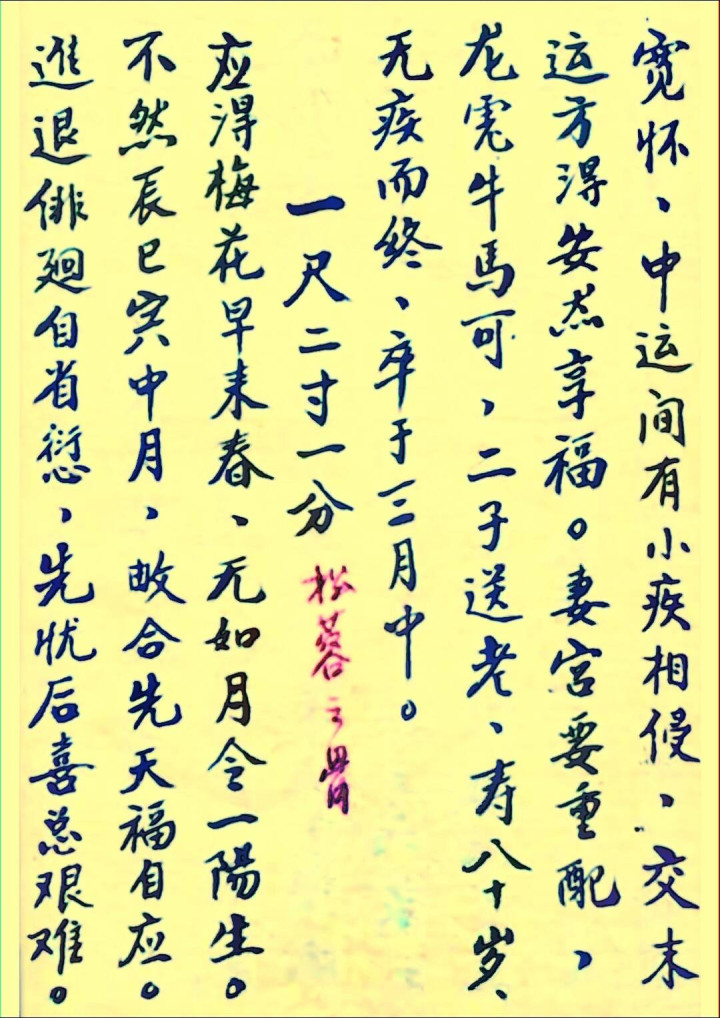 宽怀、中运间有小疾相侵、交末
运方得安然享福。妻宫要重配，
龙虎牛馬可，二子送老、寿八十岁、
无疾而终、卒于三月中。
一尺二寸一分 松蓉之骨
应得梅花早来春、无如月令一陽生。
不然辰巳寅中月，故合先天福自应。
進退俳廻自省愆，先忧后喜总艰难。